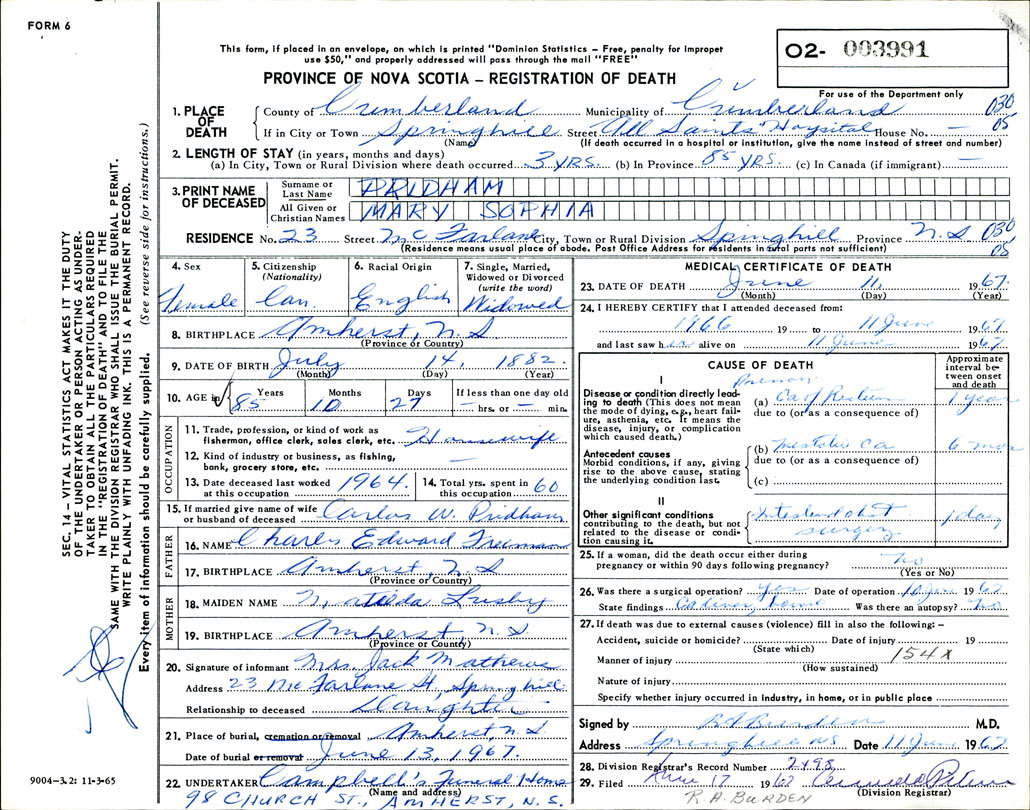 FORM 6
This form, if placed in an envelope, on which is printed "Dominion Statistics – Free, penalty for improper
use $50," and properly addressed will pass through the mail "FREE"
PROVINCE OF NOVA SCOTIA – REGISTRATION OF DEATH
O2- 003991
For use of the Department only
1. PLACE OF DEATH { County of Cumberland Municipality of Cumberland 030
If in City or Town Springhill Street All Saints Hospital House No. — 05
(Name) (If death occurred in a hospital or institution, give the name instead of street and number)
2. LENGTH OF STAY (in years, months and days)
(a) In City, Town or Rural Division where death occurred 3 YRS. (b) In Province 85 YRS. (c) In Canada (if immigrant) —
3. PRINT NAME OF DECEASED
Surname or Last Name PRIDHAM
All Given or Christian Names MARY SOPHIA
RESIDENCE No. 23 Street McFarlane City, Town or Rural Division Springhill Province N.S 030
(Residence means usual place of abode. Post Office Address for residents in rural parts not sufficient) 05
4. Sex Female
5. Citizenship (Nationality) Can.
6. Racial Origin English
7. Single, Married, Widowed or Divorced (write the word) Widowed
8. BIRTHPLACE Amherst, N.S
(Province or Country)
9. DATE OF BIRTH July 14, 1882.
(Month) (Day) (Year)
10. AGE in Years 85 Months 10 Days 27 If less than one day old — hrs. or — min.
OCCUPATION
11. Trade, profession, or kind of work as
fisherman, office clerk, sales clerk, etc. Housewife
12. Kind of industry or business, as fishing,
bank, grocery store, etc. —
13. Date deceased last worked
at this occupation 1964.
14. Total yrs. spent in
this occupation 60
15. If married give name of wife
or husband of deceased Carlos W. Pridham
FATHER
16. NAME Charles Edward Freeman
17. BIRTHPLACE Amherst, N.S
(Province or Country)
MOTHER
18. MAIDEN NAME Matilda Lusby
19. BIRTHPLACE Amherst, N.S.
(Province or Country)
20. Signature of informant Mrs. Jack Mathews
Address 23 McFarlane St, Springhill
Relationship to deceased Daughter
21. Place of burial, cremation or removal Amherst, N.S
Date of burial or removal June 13, 1967.
22. UNDERTAKER Campbell's Funeral Home
(Name and address)
98 CHURCH ST., AMHERST, N.S.
MEDICAL CERTIFICATE OF DEATH
23. DATE OF DEATH June 11, 1967.
(Month) (Day) (Year)
24. I HEREBY CERTIFY that I attended deceased from:
1966 19 to 11 June 1967
and last saw her alive on 11 June 1967
CAUSE OF DEATH
Approximate interval between onset and death
I
Disease or condition directly leading to death (This does not mean the mode of dying, e.g., heart failure, asthenia, etc. It means the disease, injury, or complication which caused death.)
(a) Ca of Rectum 1 year
due to (or as a consequence of)
Antecedent causes
Morbid conditions, if any, giving rise to the above cause, stating the underlying condition last.
(b) Ca 6 mos
due to (or as a consequence of)
(c)
II
Other significant conditions
contributing to the death, but not related to the disease or condition causing it.
Intestinal obst surgery 1 day
25. If a woman, did the death occur either during
pregnancy or within 90 days following pregnancy? No
(Yes or No)
26. Was there a surgical operation? Yes Date of operation 10 June 1967
State findings Was there an autopsy? No
27. If death was due to external causes (violence) fill in also the following: –
Accident, suicide or homicide? Date of injury 19
(State which)
154X
Manner of injury
(How sustained)
Nature of injury
Specify whether injury occurred in industry, in home, or in public place
Signed by R A Burden M.D.
Address Springhill NS Date 11 June 1967
28. Division Registrar's Record Number 2498
29. Filed June 17 1967
(Division Registrar)
R. A. BURDEN
SEC. 14 – VITAL STATISTICS ACT MAKES IT THE DUTY
OF THE UNDERTAKER OR PERSON ACTING AS UNDER-
TAKER TO OBTAIN ALL THE PARTICULARS REQUIRED
IN THE "REGISTRATION OF DEATH" AND TO FILE THE
SAME WITH THE DIVISION REGISTRAR WHO SHALL ISSUE THE BURIAL PERMIT.
WRITE PLAINLY WITH UNFADING INK. THIS IS A PERMANENT RECORD.
Every item of information should be carefully supplied. (See reverse side for instructions.)
9004–3.2: 11-3-65